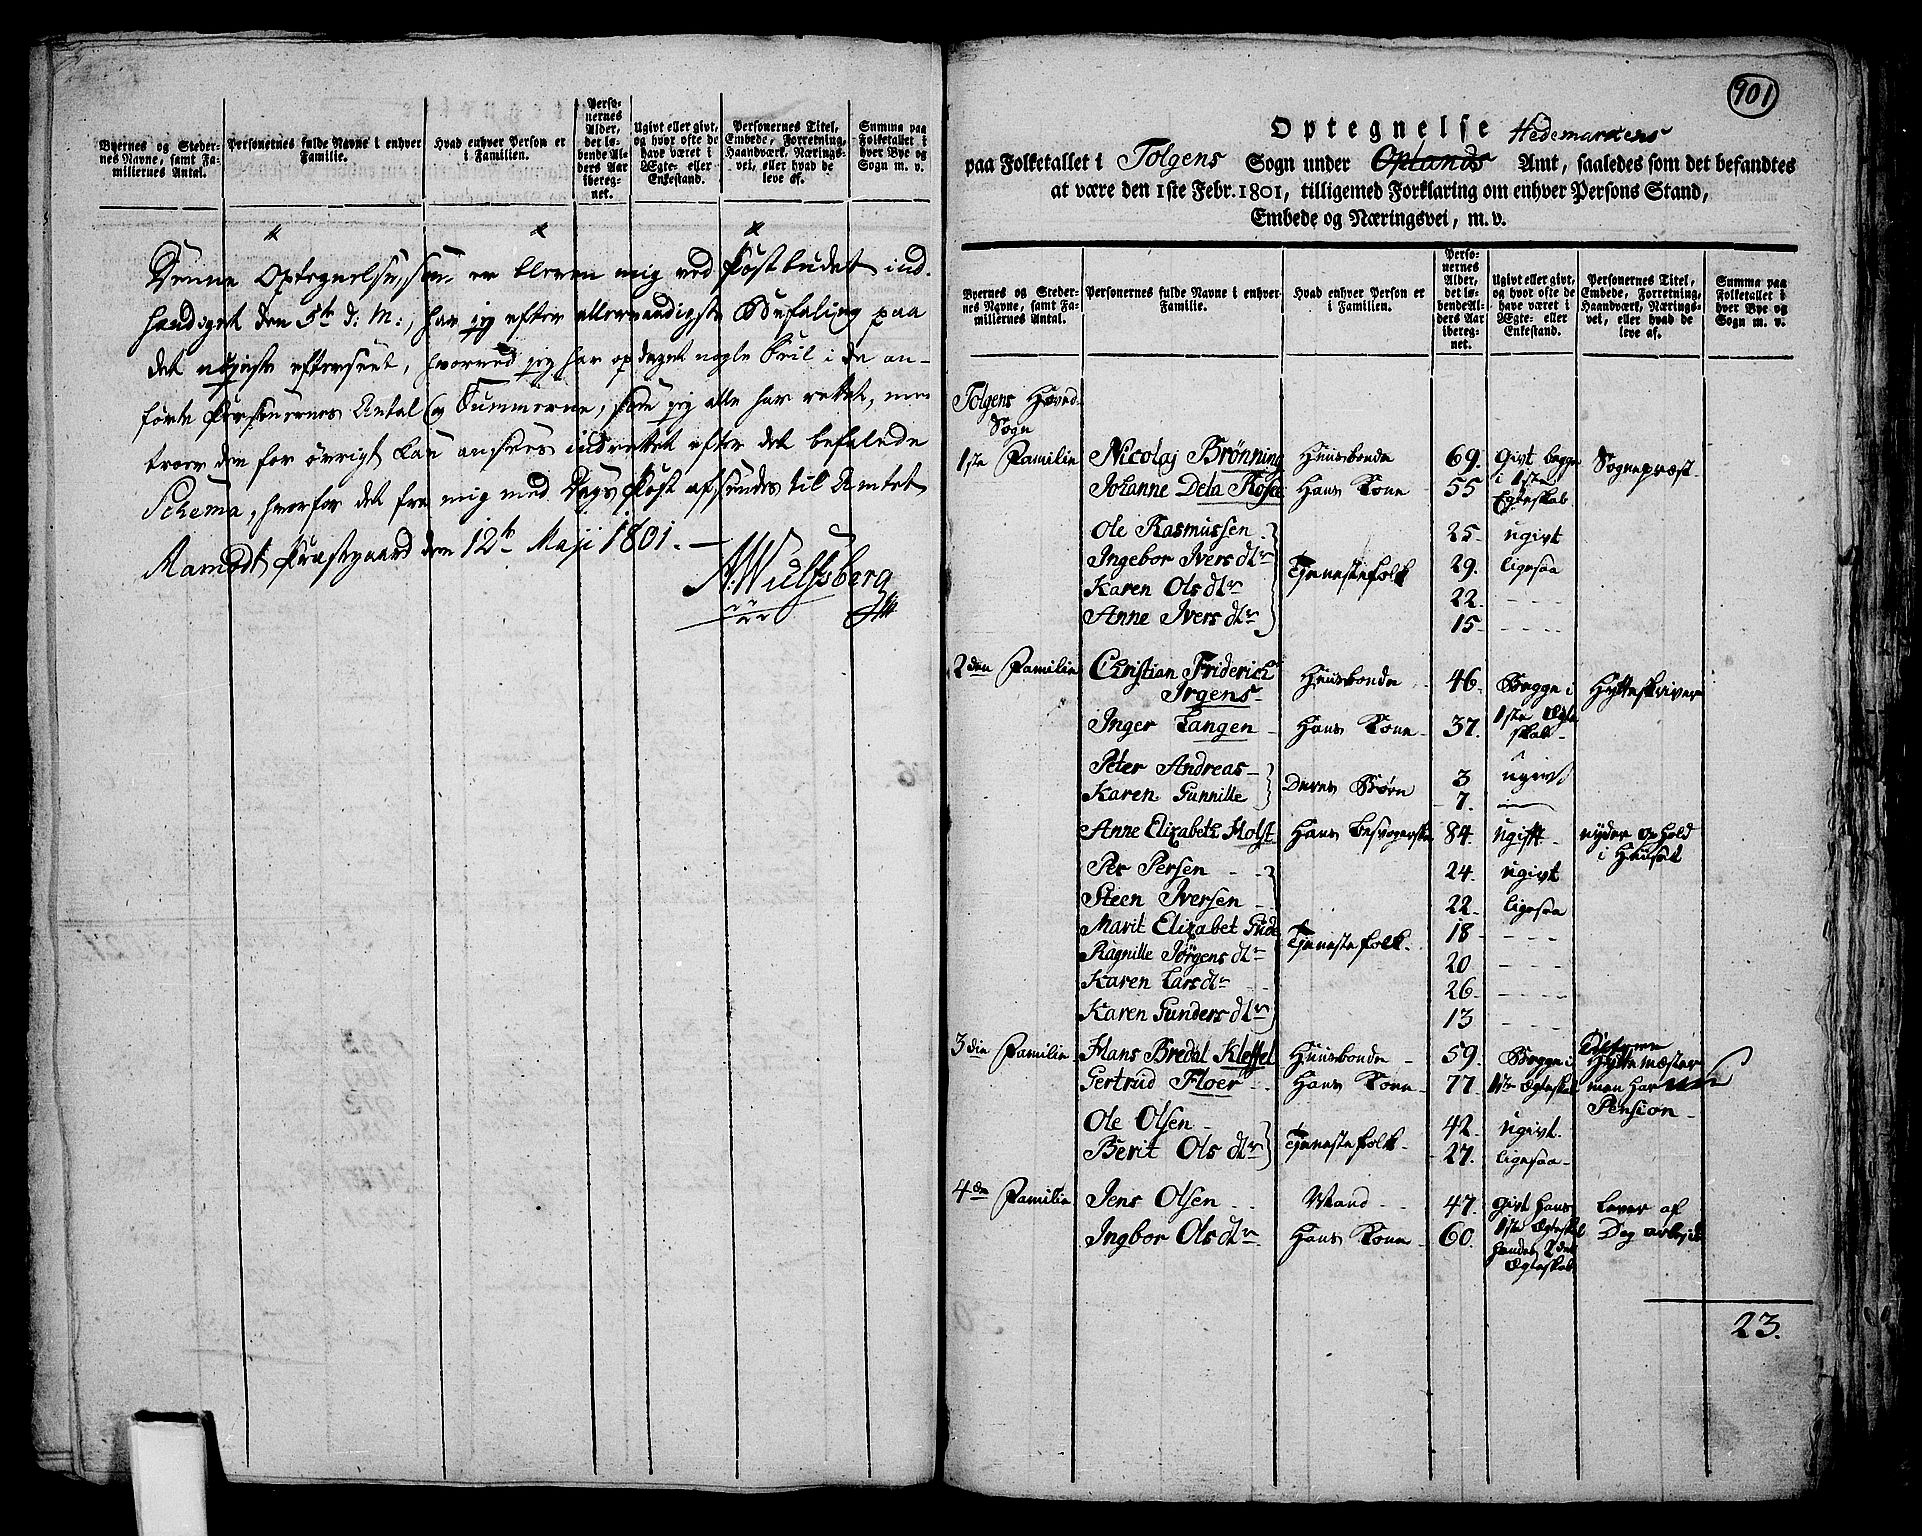 Byernes og Steder-
nes Navne, samt Fa-
miliernes Antal.
Personernes fulde Navne i enhver
Familie.
Hvad enhver Person er
i Familien.
Perso-
nernes
Alder,
det lø-
bende Al-
ders Aar
ibereg-
net.
Ugivt eller givt,
og hvor ofte de
have været i
Ægte- eller
Enkestand.
Personernes Titel,
Embede, Forretning,
Haandværk, Nærings-
vei, eller hvad de
leve af.
Summa paa
Folketallet i
hver Bye og
Sogn m. v.
Denne Optegnelse, som er bleven mig ved Postbudet ind-
handiget den 5te d: M:, har jeg efter allernaadigste Befaling paa
det nøjeste efterseet, hvorved jeg har opdaget nogle Feil i de an-
førte Personernes Antal og Summerne, som jeg alle har rettet, men
troer den for øvrigt kan ansees indrettet efter det befalede
Schema, hvorfor det fra mig med Dags Post afsendes til Amtet
Ramedt Præstgaard den 12te Maji 1801. —
Wulfsberg
901
Optegnelse Hedemarkens
paa Folketallet i Tolgens Sogn under Oplands Amt, saaledes som det befandtes
at være den 1ste Febr. 1801, tilligemed Forklaring om enhver Persons Stand,
Embede og Næringsvei, m. v.
Byernes og Steder-
nes Navne, samt Fa-
miliernes Antal.
Personernes fulde Navne i enhver
Familie.
Hvad enhver Person er
i Familien.
Perso-
nernes
Alder,
det lø-
bende Al-
ders Aar
ibereg-
net.
Ugivt eller givt,
og hvor ofte de
have været i
Ægte- eller
Enkestand.
Personernes Titel,
Embede, Forretning,
Haandværk, Nærings-
vei, eller hvad de
leve af.
Summa paa
Folketallet i
hver Bye og
Sogn m. v.
Tolgens Hoved-
Sogn
1ste Familie Nicolaj Brønning Huusbonde 69. Givt begge Sognepræst.
Johanne Dela Rosee Hans Kone 55 i 1ste
Egteskab
Ole Rasmussen 25. ugivt
Ingebor Ivers dtr Tjenestefolk 29. ligesaa
Karen Ols dtr 22.
Anne Ivers dtr 15.
2den Familie Christian Friderich Huusbonde 46. Begge i Hytteskriver
Irgens
Inger Langen Hans Kone 37. 1ste Ægte
skab
Peter Andreas 3 ugivt
Karen Gunnille Deres Børn 7.
Anne Elizabeth Holst Hans Besvogerske 84. ugifft nyder ophold
i Huuset
Per Persen 24. ugivt
Steen Iversen 22. ligesaa
Marit Elizabet Gude Tjenestefolk 18
Ragnille Jørgens dtr 20
Karen Lars dtr 26.
Karen Gunders dtr 13
3die Familie Hans Bredal Kleffel Huusbonde 59. Begge i Hyttemæster
Gertrud Floer Hans Kone 77. 1ste Egteskab men har
Pension
Ole Olsen 42. ugivt.
Berit Ols dtr Tjenestefolk 27. ligesaa
4de Familie Jens Olsen Mand 47. Givt hans Lever af
Ingbor Ols dtr Hans Kone 60. 1ste Egteskab Dag arbejde
hendes 2det
Ægteskab
23.